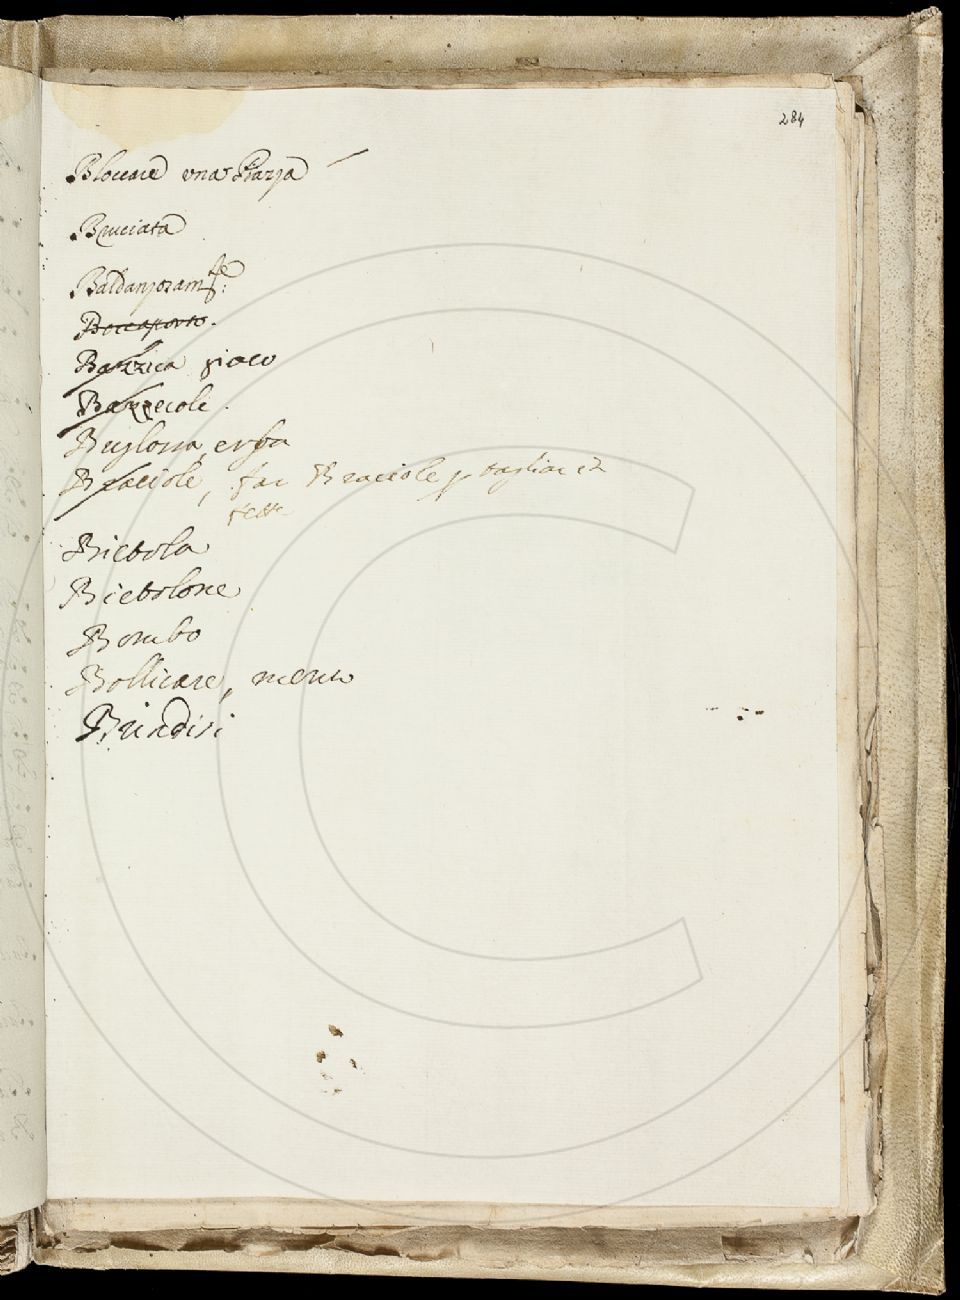 284
Bloccare una Piazza
Bruciata
Baldanzosam.te
Boccaporto.
Bazzica gioco
Bazzecole.
Buglossa, erba
Braciole, far Braciole p tagliar in
fette
Bietola
Bietolone
Bombo
Bollicare, mento
Brindisi